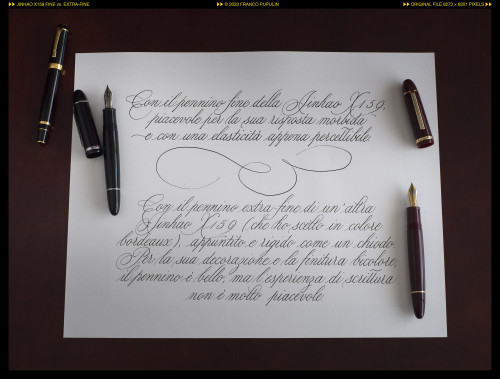 JINHAO X159 FINE vs. EXTRA-FINE
© 2023 FRANCO PUPULIN
ORIGINAL FILE 8273 x 6201 PIXELS
Con il pennino fine della Jinhao X159,
piacevole per la sua risposta morbida
e con una elasticità appena percettibile.
Con il pennino extra-fine di un'altra
Jinhao X159 (che ho scelto in colore
bordeaux), appuntito e rigido come un chiodo.
Per la sua decorazione e la finitura bicolore,
il pennino è bello, ma l'esperienza di scrittura
non è molto piacevole